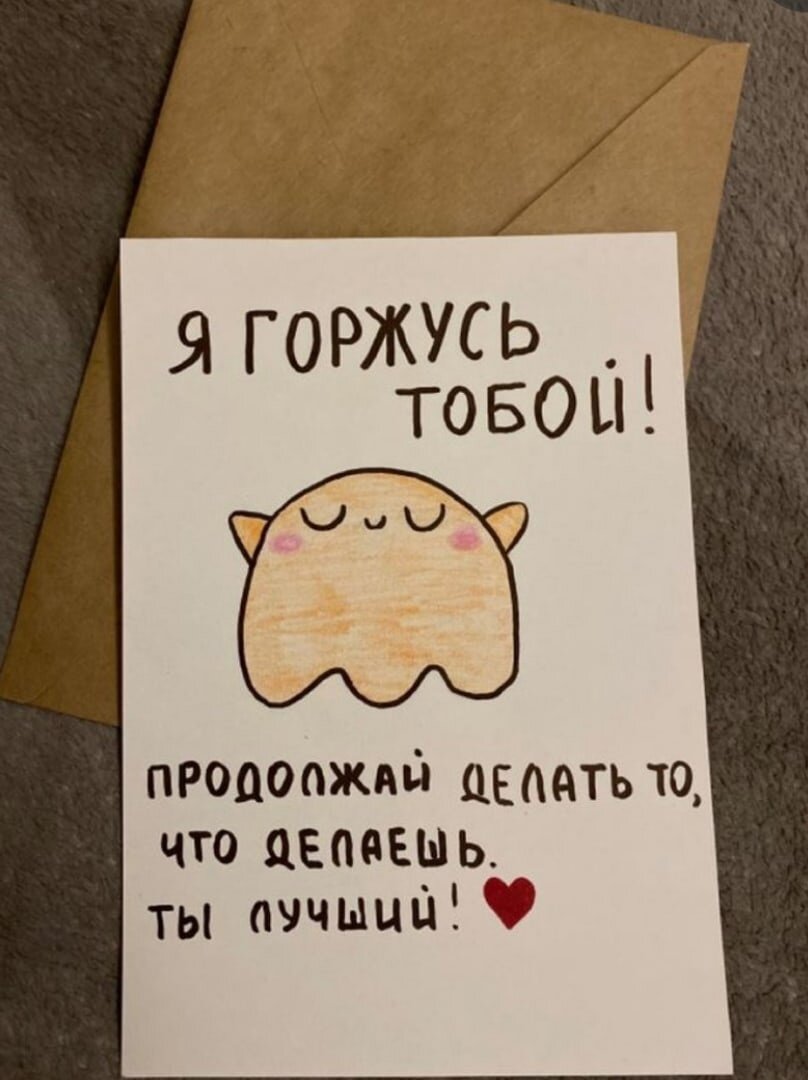 Я ГОРЖУСЬ
ТОБОЙ!
ПРОДОЛЖАЙ ДЕЛАТЬ ТО,
ЧТО ДЕЛАЕШЬ.
ТЫ ЛУЧШИЙ! ♥